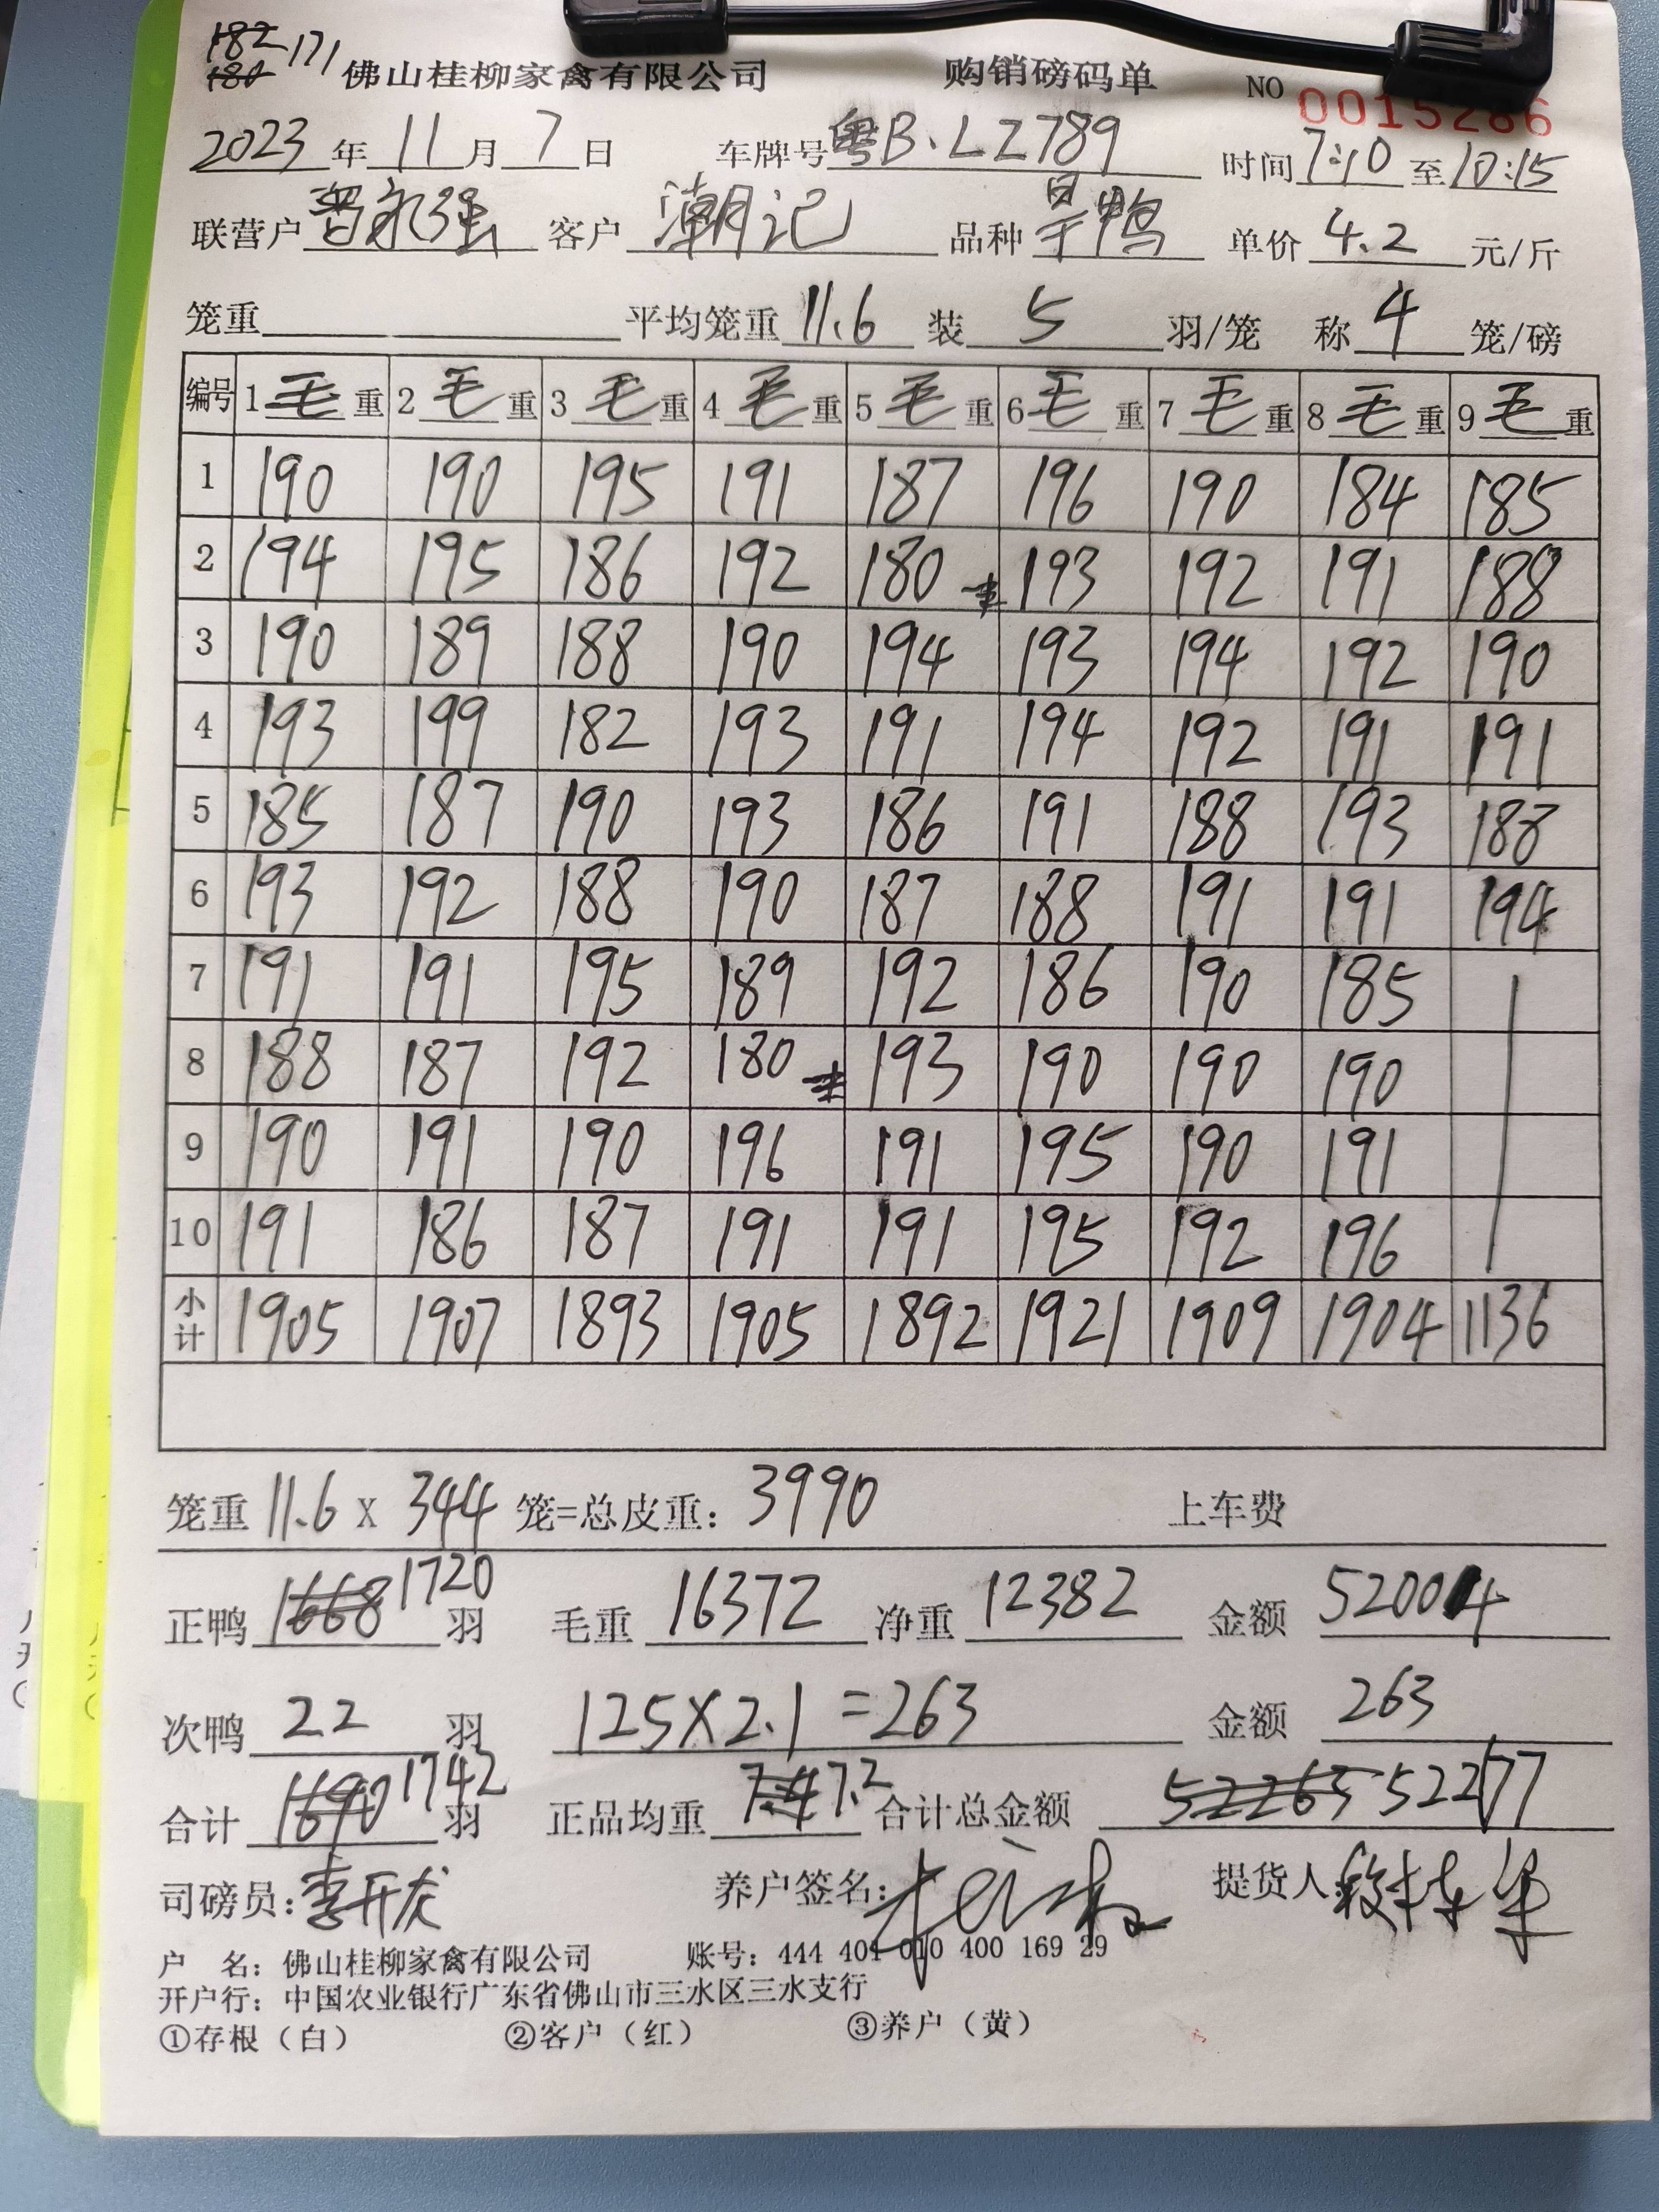 182 171
180
佛山桂柳家禽有限公司 购销磅码单 NO 0015286
2023年11月7日 车牌号粤B.LZ789 时间7:10至10:15
联营户 永强 客户 潮记 品种 鸭 单价 4.2 元/斤
笼重 平均笼重 11.6 装 5 羽/笼 称 4 笼/磅
编号 1毛重 2毛重 3毛重 4毛重 5毛重 6毛重 7毛重 8毛重 9毛重
1 190 190 195 191 187 196 190 184 185
2 194 195 186 192 180 193 192 191 188
3 190 189 188 190 194 193 194 192 190
4 193 199 182 193 191 194 192 191 191
5 185 187 190 193 186 191 188 193 188
6 193 192 188 190 187 188 191 191 194
7 191 191 195 189 192 186 190 185
8 188 187 192 180 193 190 190 190
9 190 191 190 196 191 195 190 191
10 191 186 187 191 191 195 192 196
小计 1905 1907 1893 1905 1892 1921 1909 1904 1136
笼重 11.6 X 344 笼=总皮重: 3990 上车费
正鸭 1668 1720 羽 毛重 16372 净重 12382 金额 52004
次鸭 22 羽 125X2.1=263 金额 263
合计 1690 1742 羽 正品均重 7.2 合计总金额 52265 52277
司磅员: 李开龙 养户签名: 提货人
户 名: 佛山桂柳家禽有限公司 账号: 444 401 010 400 169 29
开户行: 中国农业银行广东省佛山市三水区三水支行
①存根（白） ②客户（红） ③养户（黄）